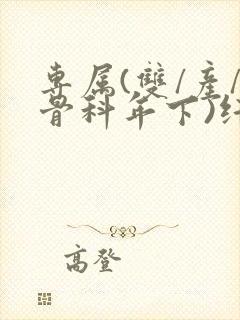 專属(雙/產/
骨科年下)
高登